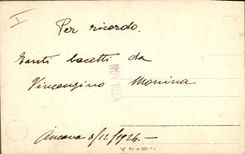 I
Per ricordo.
Tanti bacetti da
Vincenzino Monina
Ancona 8/12/1924 -
NOV 1924